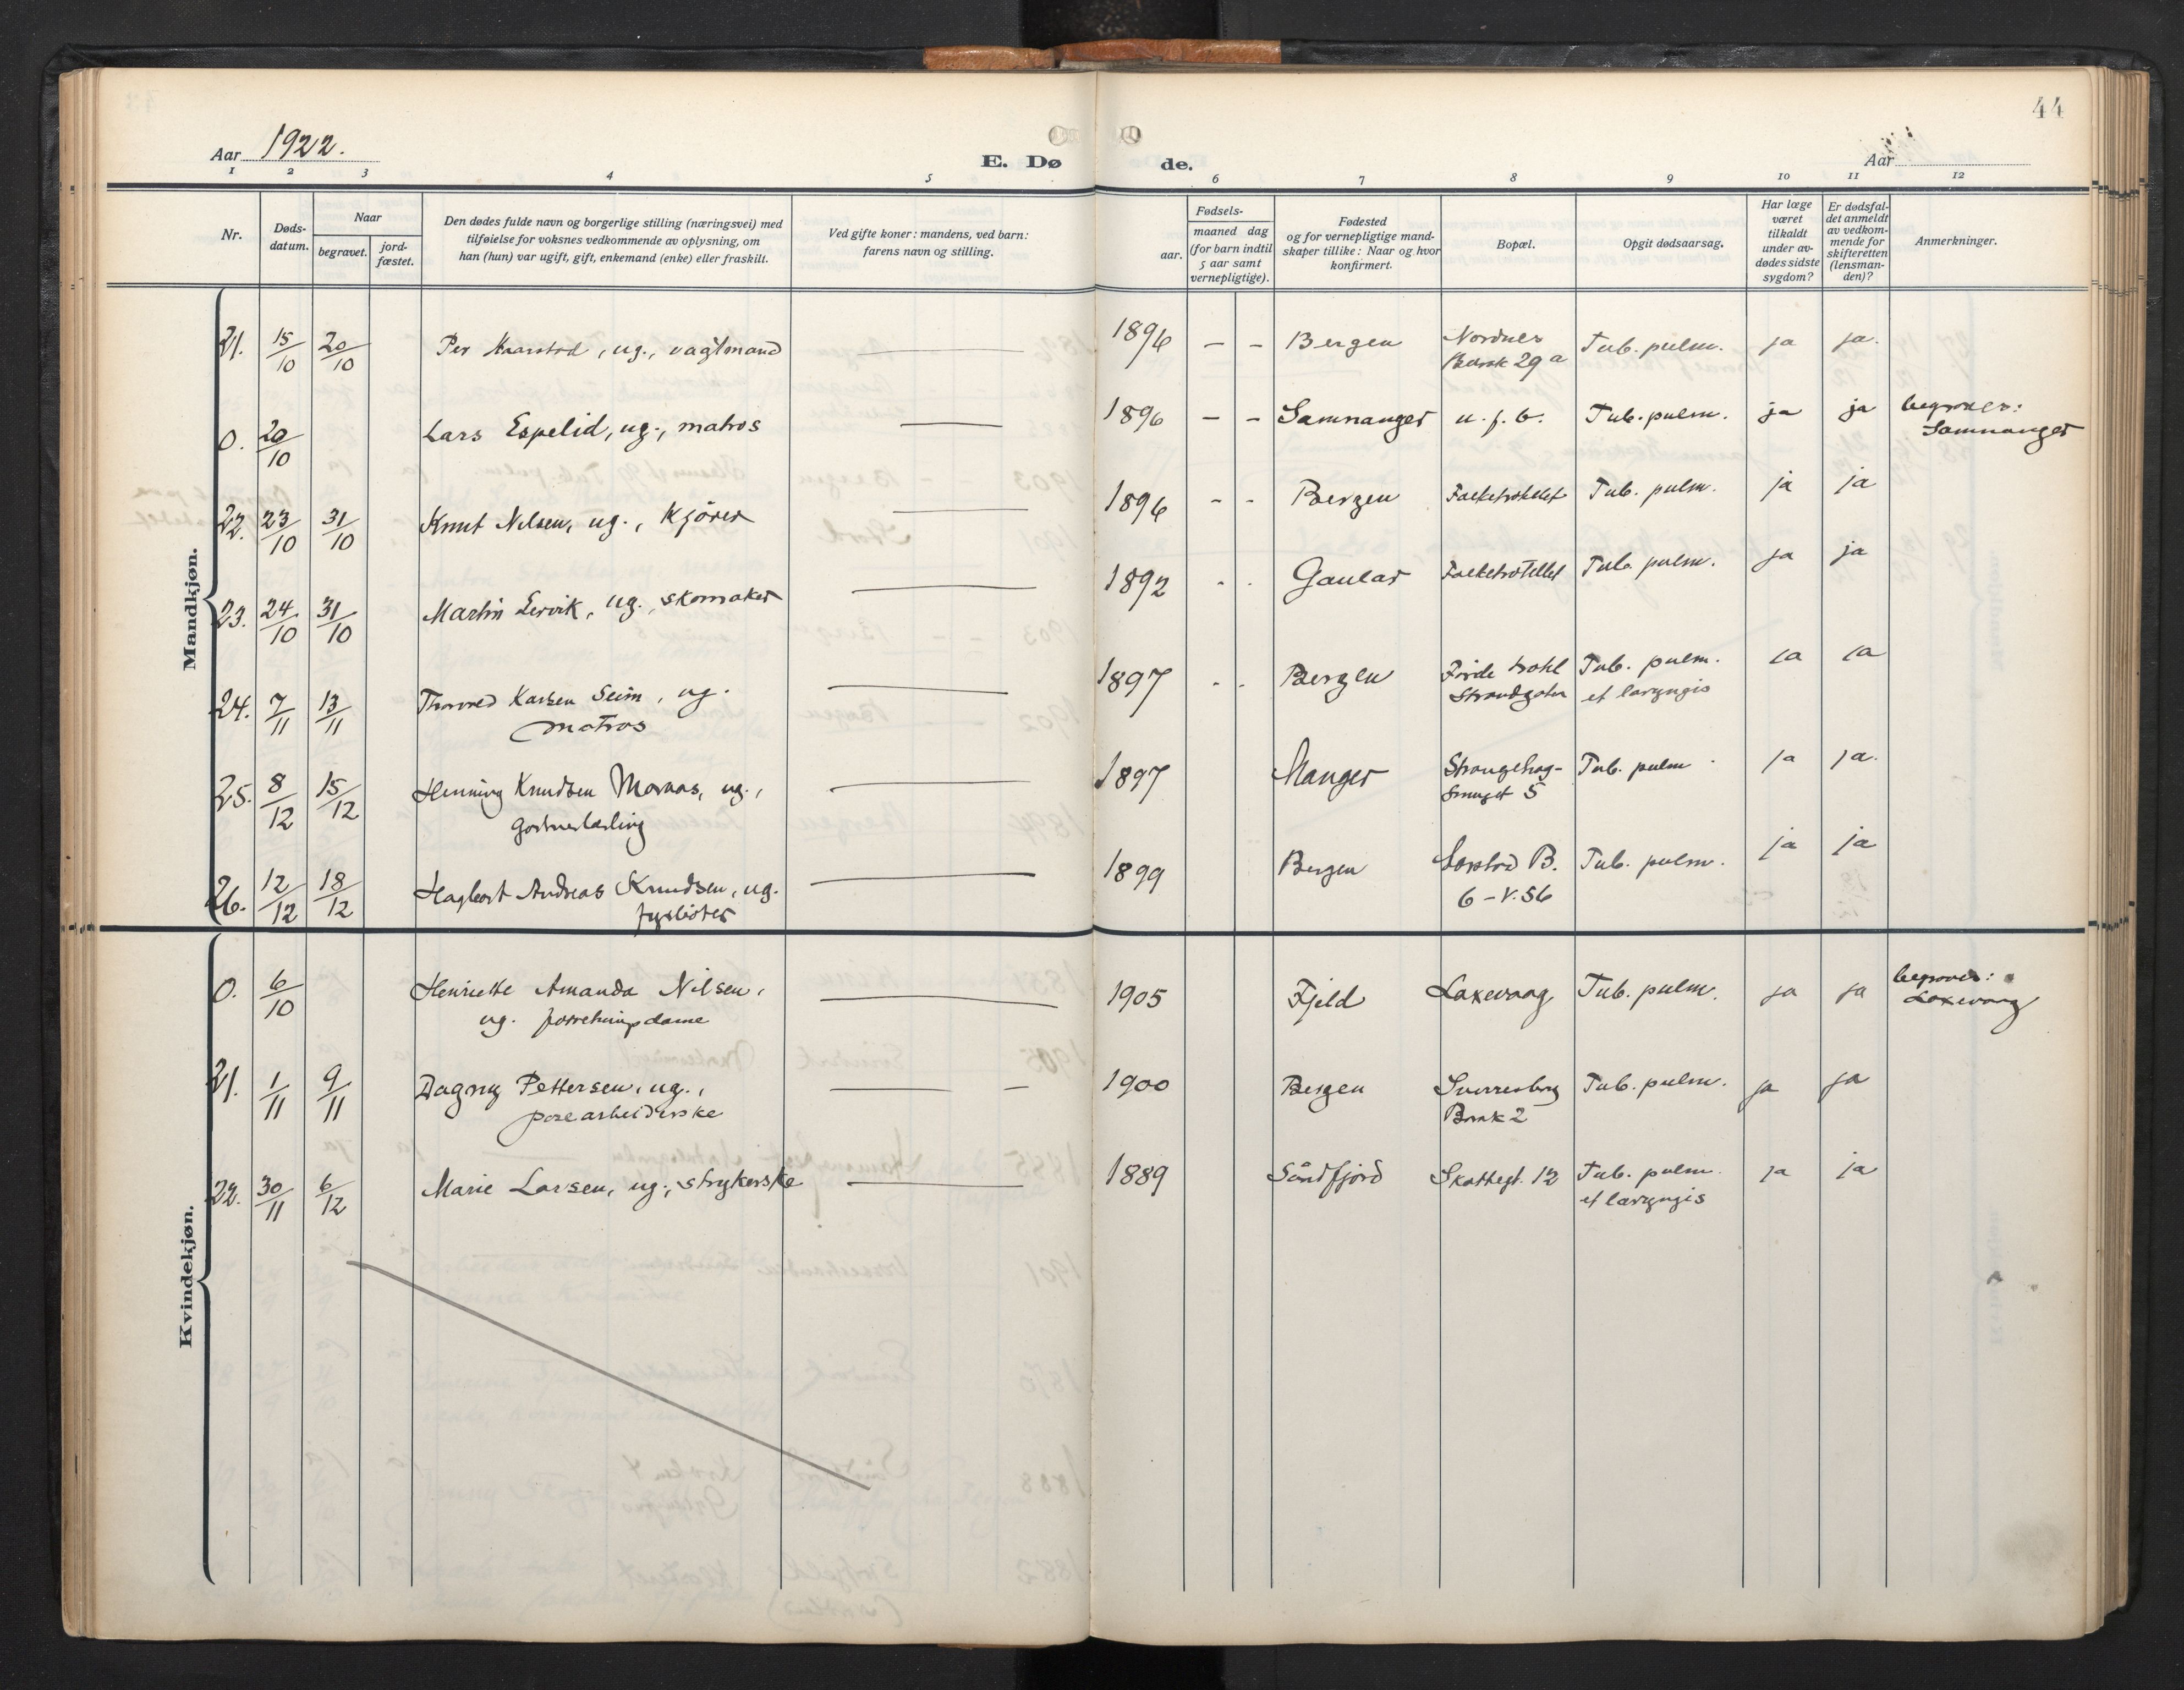 44
Aar 1922.
E. Dø
de.
Aar
1 2 3 4 5 6 7 8 9 10 11 12
Nr.
Døds-
datum.
Naar
begravet.
jord-
fæstet.
Den dødes fulde navn og borgerlige stilling (næringsvei) med
tilføielse for voksnes vedkommende av oplysning, om
han (hun) var ugift, gift, enkemand (enke) eller fraskilt.
Ved gifte koner: mandens, ved barn:
farens navn og stilling.
Fødsels-
aar.
maaned dag
(for barn indtil
5 aar samt
vernepligtige).
Fødested
og for vernepligtige mand-
skaper tillike: Naar og hvor
konfirmert.
Bopæl.
Opgit dødsaarsag.
Har læge
været
tilkaldt
under av-
dødes sidste
sygdom?
Er dødsfal-
det anmeldt
av vedkom-
mende for
skifteretten
(lensman-
den)?
Anmerkninger.
Mandkjøn.
21. 15/10 20/10 Per Kaarstad, ug., vagtmand — 1896 - - Bergen Nordnes Tub. pulm. ja ja.
Bakk 29 a
0. 20/10 Lars Espelid, ug., matros — 1896 - - Samnanger u. f. b. Tub. pulm. ja ja begraves:
Samnanger
22. 23/10 31/10 Knut Nilsen, ug., Kjører — 1896 - - Bergen Folkehotellet Tub. pulm. ja ja
23. 24/10 31/10 Martin Leirvik, ug., skomaker — 1892 - - Gaular Folkehotellet Tub. pulm. ja ja
24. 7/11 13/11 Karsen Seim, ug. — 1897 - - Bergen Førde hotel Tub. pulm. ja ja
matros Strandgaten et laryngis
25. 8/12 15/12 Henning Knudsen Moraas, ug., — 1897 Manger Strangehag- Tub. pulm. ja ja.
gartnerlærling Smuget 5
26. 12/12 18/12 Hagbart Andreas Knudsen, ug. — 1899 Bergen B. Tub. pulm. ja ja
fyrbøter 6 - V. 56
Kvindekjøn.
0. 6/10 Henriette Amanda Nilsen, — 1905 Fjeld Laxevaag Tub. pulm. ja ja begraves:
ug. forretningsdame Laxevaag
21. 1/11 9/11 Dagny Pettersen, ug., — 1900 Bergen Sverresborg Tub. pulm. ja ja
posearbeiderske Bakk 2
22. 30/11 6/12 Marie Larsen, ug., strykerske — 1889 Søndfjord Skottegt. 12 Tub. pulm. ja ja
et laryngis